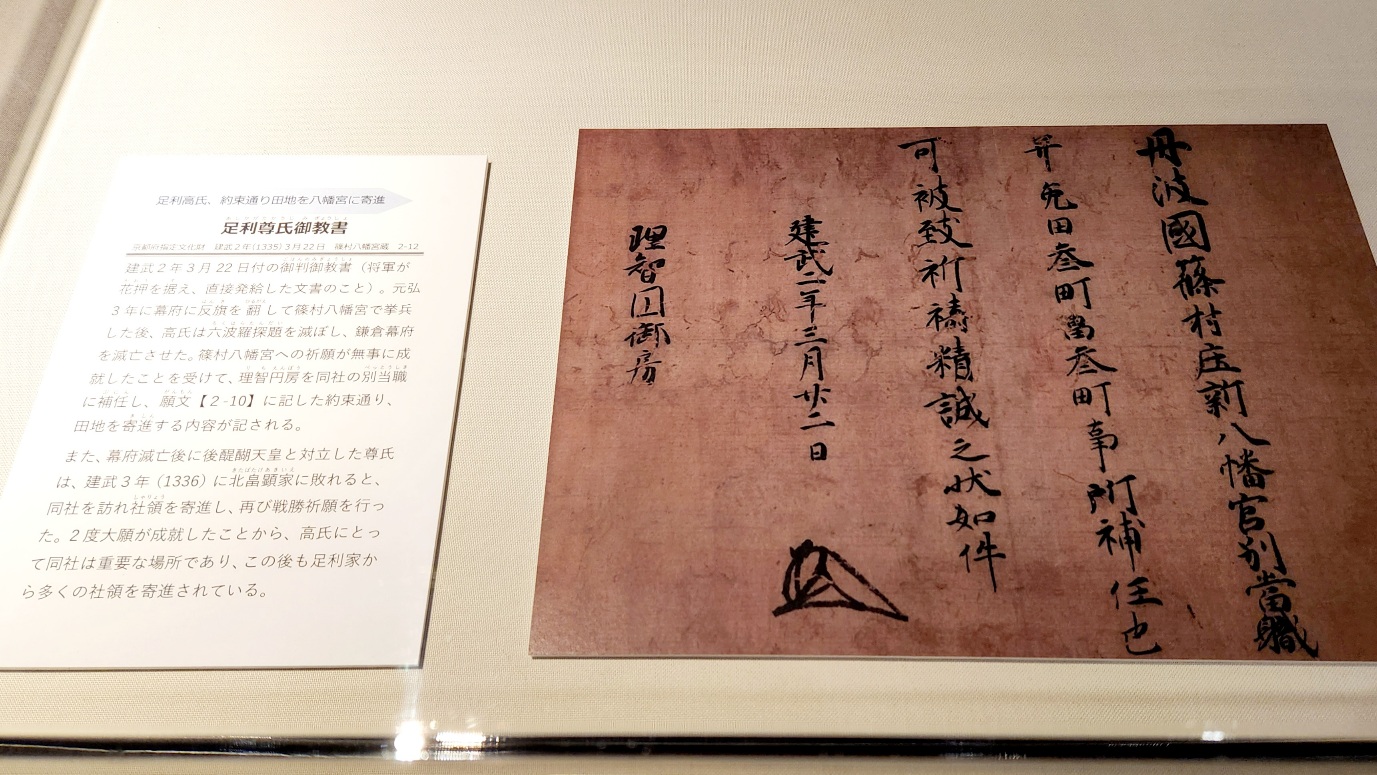 足利高氏、約束通り田地を八幡宮に寄進
足利尊氏御教書
京都府指定文化財　建武２年(1335)３月22日　篠村八幡宮蔵　2-12
建武２年３月22日付の御判御教書（将軍が
花押を据え、直接発給した文書のこと）。元弘
３年に幕府に反旗を翻して篠村八幡宮で挙兵
した後、高氏は六波羅探題を滅ぼし、鎌倉幕府
を滅亡させた。篠村八幡宮への祈願が無事に成
就したことを受けて、理智円房を同社の別当職
に補任し、願文【２-10】に記した約束通り、
田地を寄進する内容が記される。
また、幕府滅亡後に後醍醐天皇と対立した尊氏
は、建武３年（1336）に北畠顕家に敗れると、
同社を訪れ社領を寄進し、再び戦勝祈願を行っ
た。２度大願が成就したことから、高氏にとっ
て同社は重要な場所であり、この後も足利家か
ら多くの社領を寄進されている。
丹波國篠村庄新八幡宮別當職
并免田叁町畠叁町事所補任也
可被致祈禱精誠之状如件
建武二年三月廿二日
理智円御房